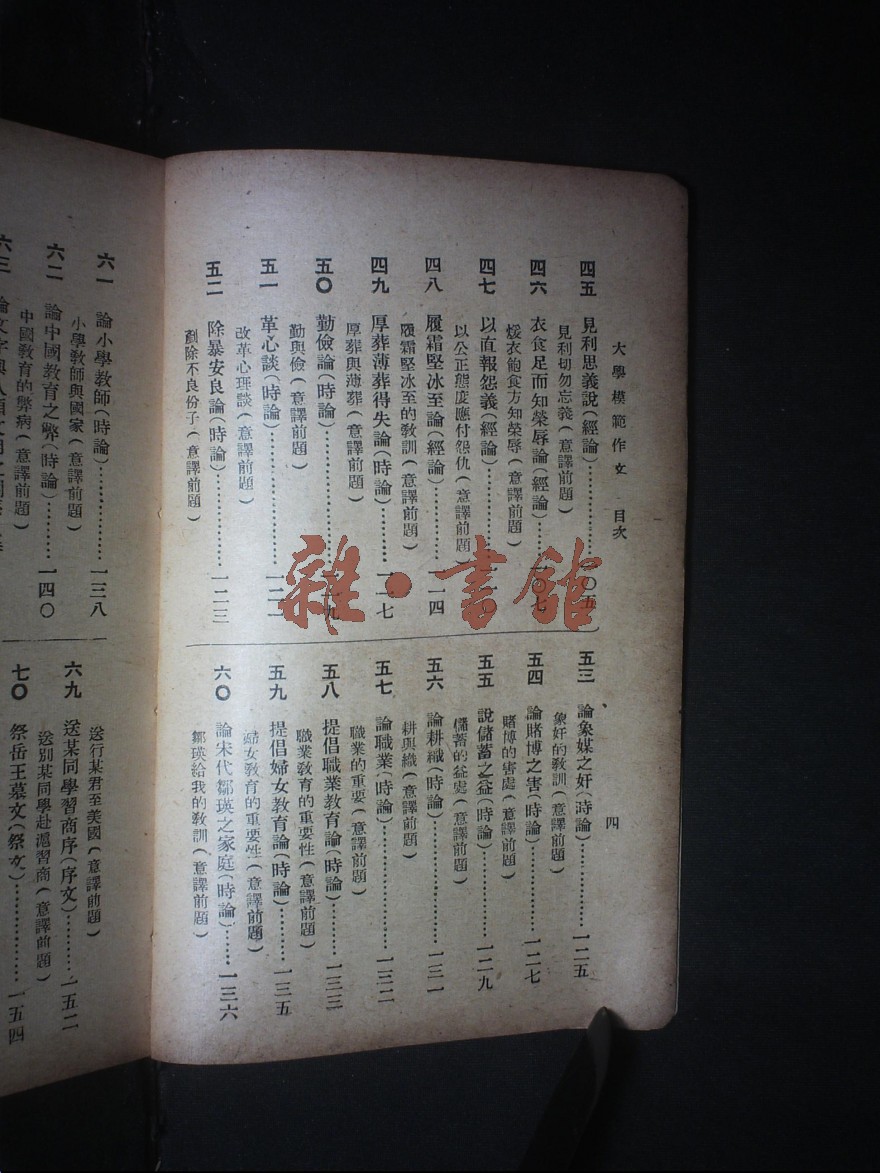 大學模範作文 目次
四
四五 見利思義說(經論)……一〇五
見利切勿忘義(意譯前題)
四六 衣食足而知榮辱論(經論)……一〇七
煖衣飽食方知榮辱(意譯前題)
四七 以直報怨義(經論)……一一
以公正態度應付怨仇(意譯前題)
四八 履霜堅冰至論(經論)……一一四
履霜堅冰至的敎訓(意譯前題)
四九 厚葬薄葬得失論(時論)……一一七
厚葬與薄葬(意譯前題)
五〇 勤儉論(時論)……一一九
勤與儉(意譯前題)
五一 革心談(時論)……一二一
改革心理談(意譯前題)
五二 除暴安良論(時論)……一二三
剷除不良份子(意譯前題)
五三 論象媒之奸(時論)……一二五
象奸的敎訓(意譯前題)
五四 論賭博之害(時論)……一二七
賭博的害處(意譯前題)
五五 說儲蓄之益(時論)……一二九
儲蓄的益處(意譯前題)
五六 論耕織(時論)……一三一
耕與織(意譯前題)
五七 論職業(時論)……一三二
職業的重要(意譯前題)
五八 提倡職業敎育論(時論)……一三三
職業敎育的重要性(意譯前題)
五九 提倡婦女敎育論(時論)……一三五
婦女敎育的重要性(意譯前題)
六〇 論宋代鄒瑛之家庭(時論)……一三六
鄒瑛給我的敎訓(意譯前題)
六一 論小學敎師(時論)……一三八
小學敎師與國家(意譯前題)
六二 論中國敎育之弊(時論)……一四〇
中國敎育的弊病(意譯前題)
六三 論文字與人類文明之
送行某君至美國(意譯前題)
六九 送某同學習商序(序文)……一五二
送別某同學赴滬習商(意譯前題)
七〇 祭岳王墓文(祭文)……一五四
雜·書館